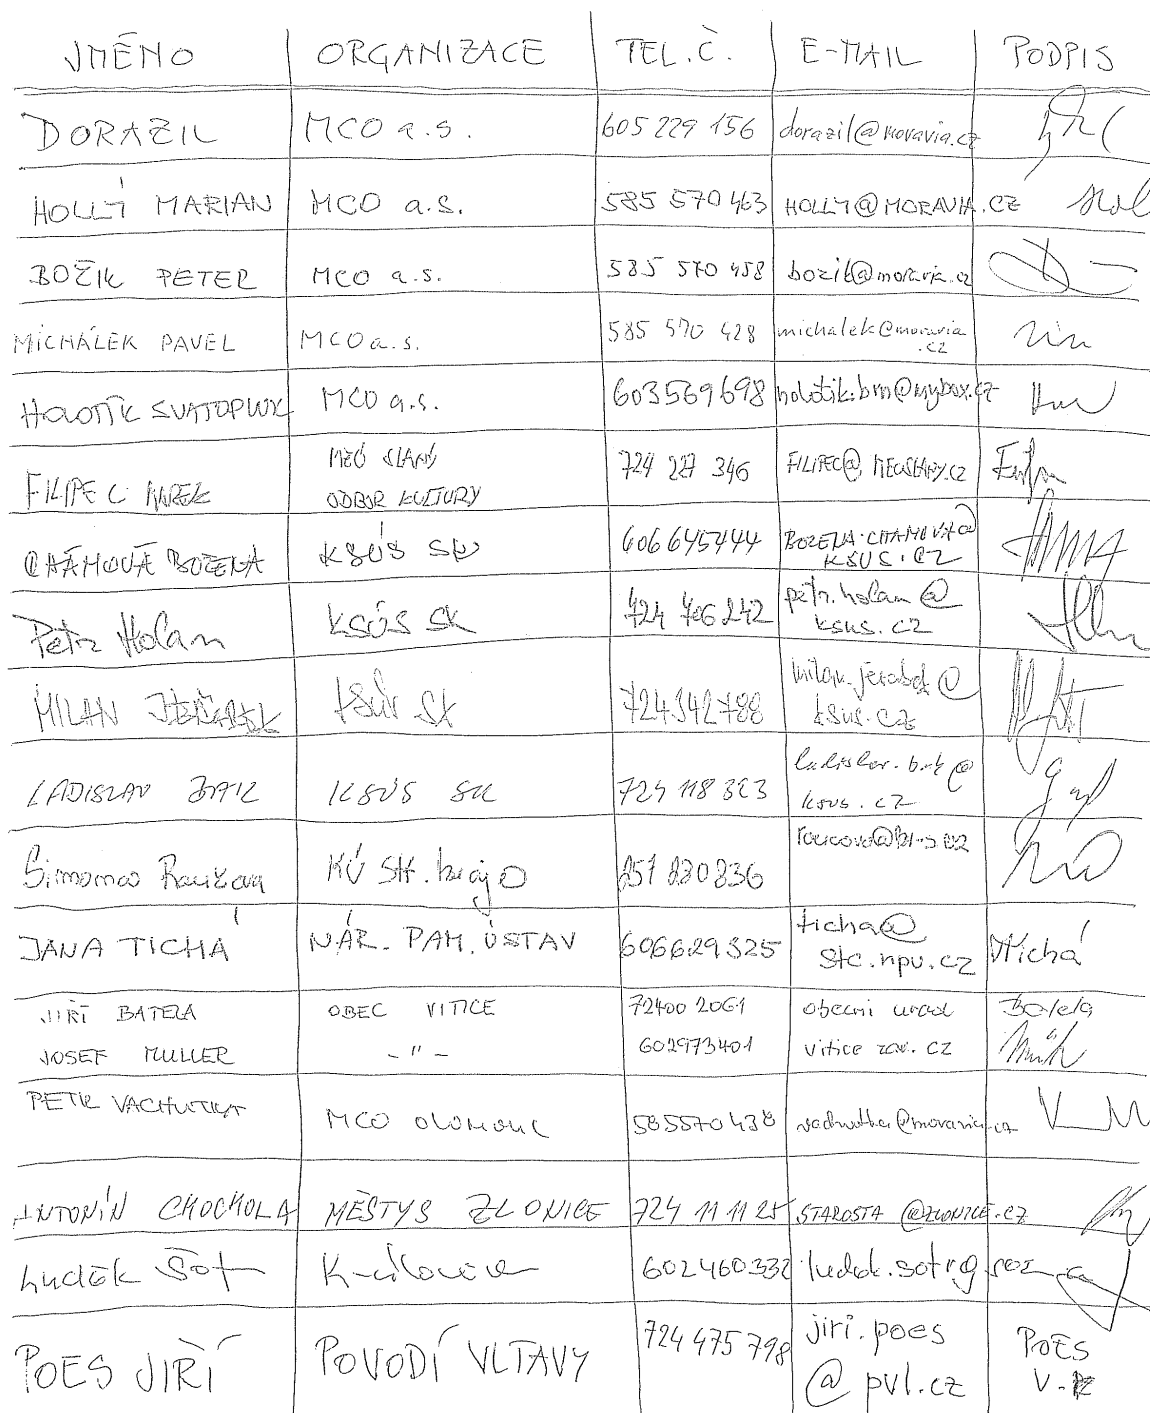 JMÉNO ORGANIZACE TEL.Č. E-MAIL PODPIS
DORAZIL MCO a.s. 605 229 156 dorazil@moravia.cz
HOLLÝ MARIAN MCO a.s. 585 570 463 HOLLY@MORAVIA.CZ
BOŽIK PETER MCO a.s. 585 570 458 bozik@moravia.cz
MICHÁLEK PAVEL MCO a.s. 585 570 428 michalek@moravia
.cz
HOLOTÍK SVATOPLUK MCO a.s. 603569698 holotik.brn@mybox.cz
MěÚ SLANÝ 724 227 346 FILIPEC@MEUSLANY.CZ
FILIPEC MAREK ODBOR KULTURY
CHÁMOVÁ BOŽENA KSÚS SK 606645444 BOZENA.CHAMOVA@
KSUS.CZ
Petr Holan KSÚS SK 724 706 242 petr.holan@
ksus.cz
MILAN JEŘÁBEK KSÚS SK 724342788 milan.jerabek@
ksus.cz
LADISLAV KSÚS SK 724 118 323 ladislav.
@
ksus.cz
Simona KÚ Stř. kraje 257 280 836
JANA TICHÁ NÁR. PAM. ÚSTAV 606629325 ticha@
stc.npu.cz Tichá
JIŘÍ BATELA OBEC VITICE 72400 2061 obecni urad Batela
JOSEF MULLER -"- 602973401 vitice .cz
PETR VACHUTKA MCO OLOMOUC 585570438 vachutka@moravia.cz
ANTONÍN CHOCHOLA MĚSTYS ZLONICE 724 11 11 25 STAROSTA@ZLONICE.CZ
Luděk Šot 602460332 ludek.sot
POES JIŘÍ POVODÍ VLTAVY 724 475 798 jiri.poes POES
@pvl.cz V.R